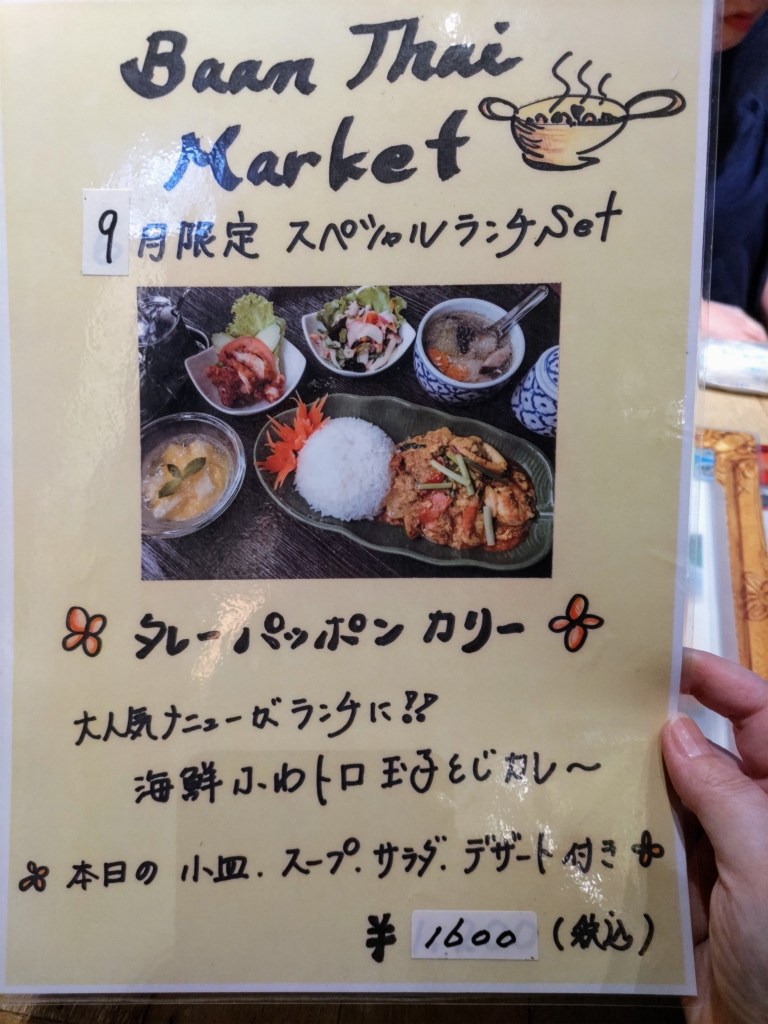 Baan Thai
Market
9月限定 スペシャルランチSet
タレーパッポン カリー
大人気メニューがランチに!!
海鮮ふわトロ玉子とじカレ〜
本日の 小皿.スープ.サラダ.デザート付き
¥ 1600 (税込)